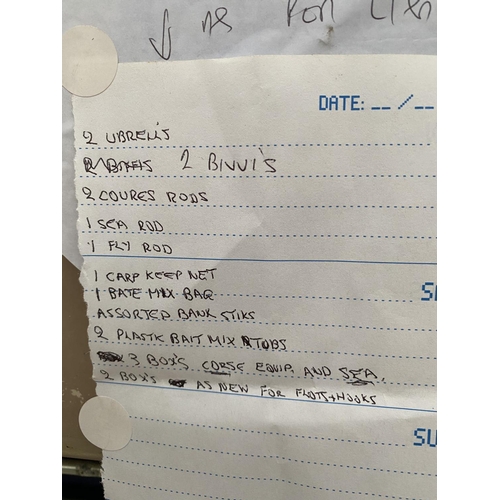 ↓ ns FOR
DATE: __/__
2 UBRELL'S
2 BIVVI'S
2 COURES RODS
1 SEA ROD
1 FLY ROD
1 CARP KEEP NET
1 BATE MIX BAG
ASSORTED BANK STIKS
2 PLASTIC BAIT MIX TUBS
3 BOX'S CORSE EQUIP. AND SEA.
2 BOX'S AS NEW FOR FLOTS+HOOKS
SA
SU